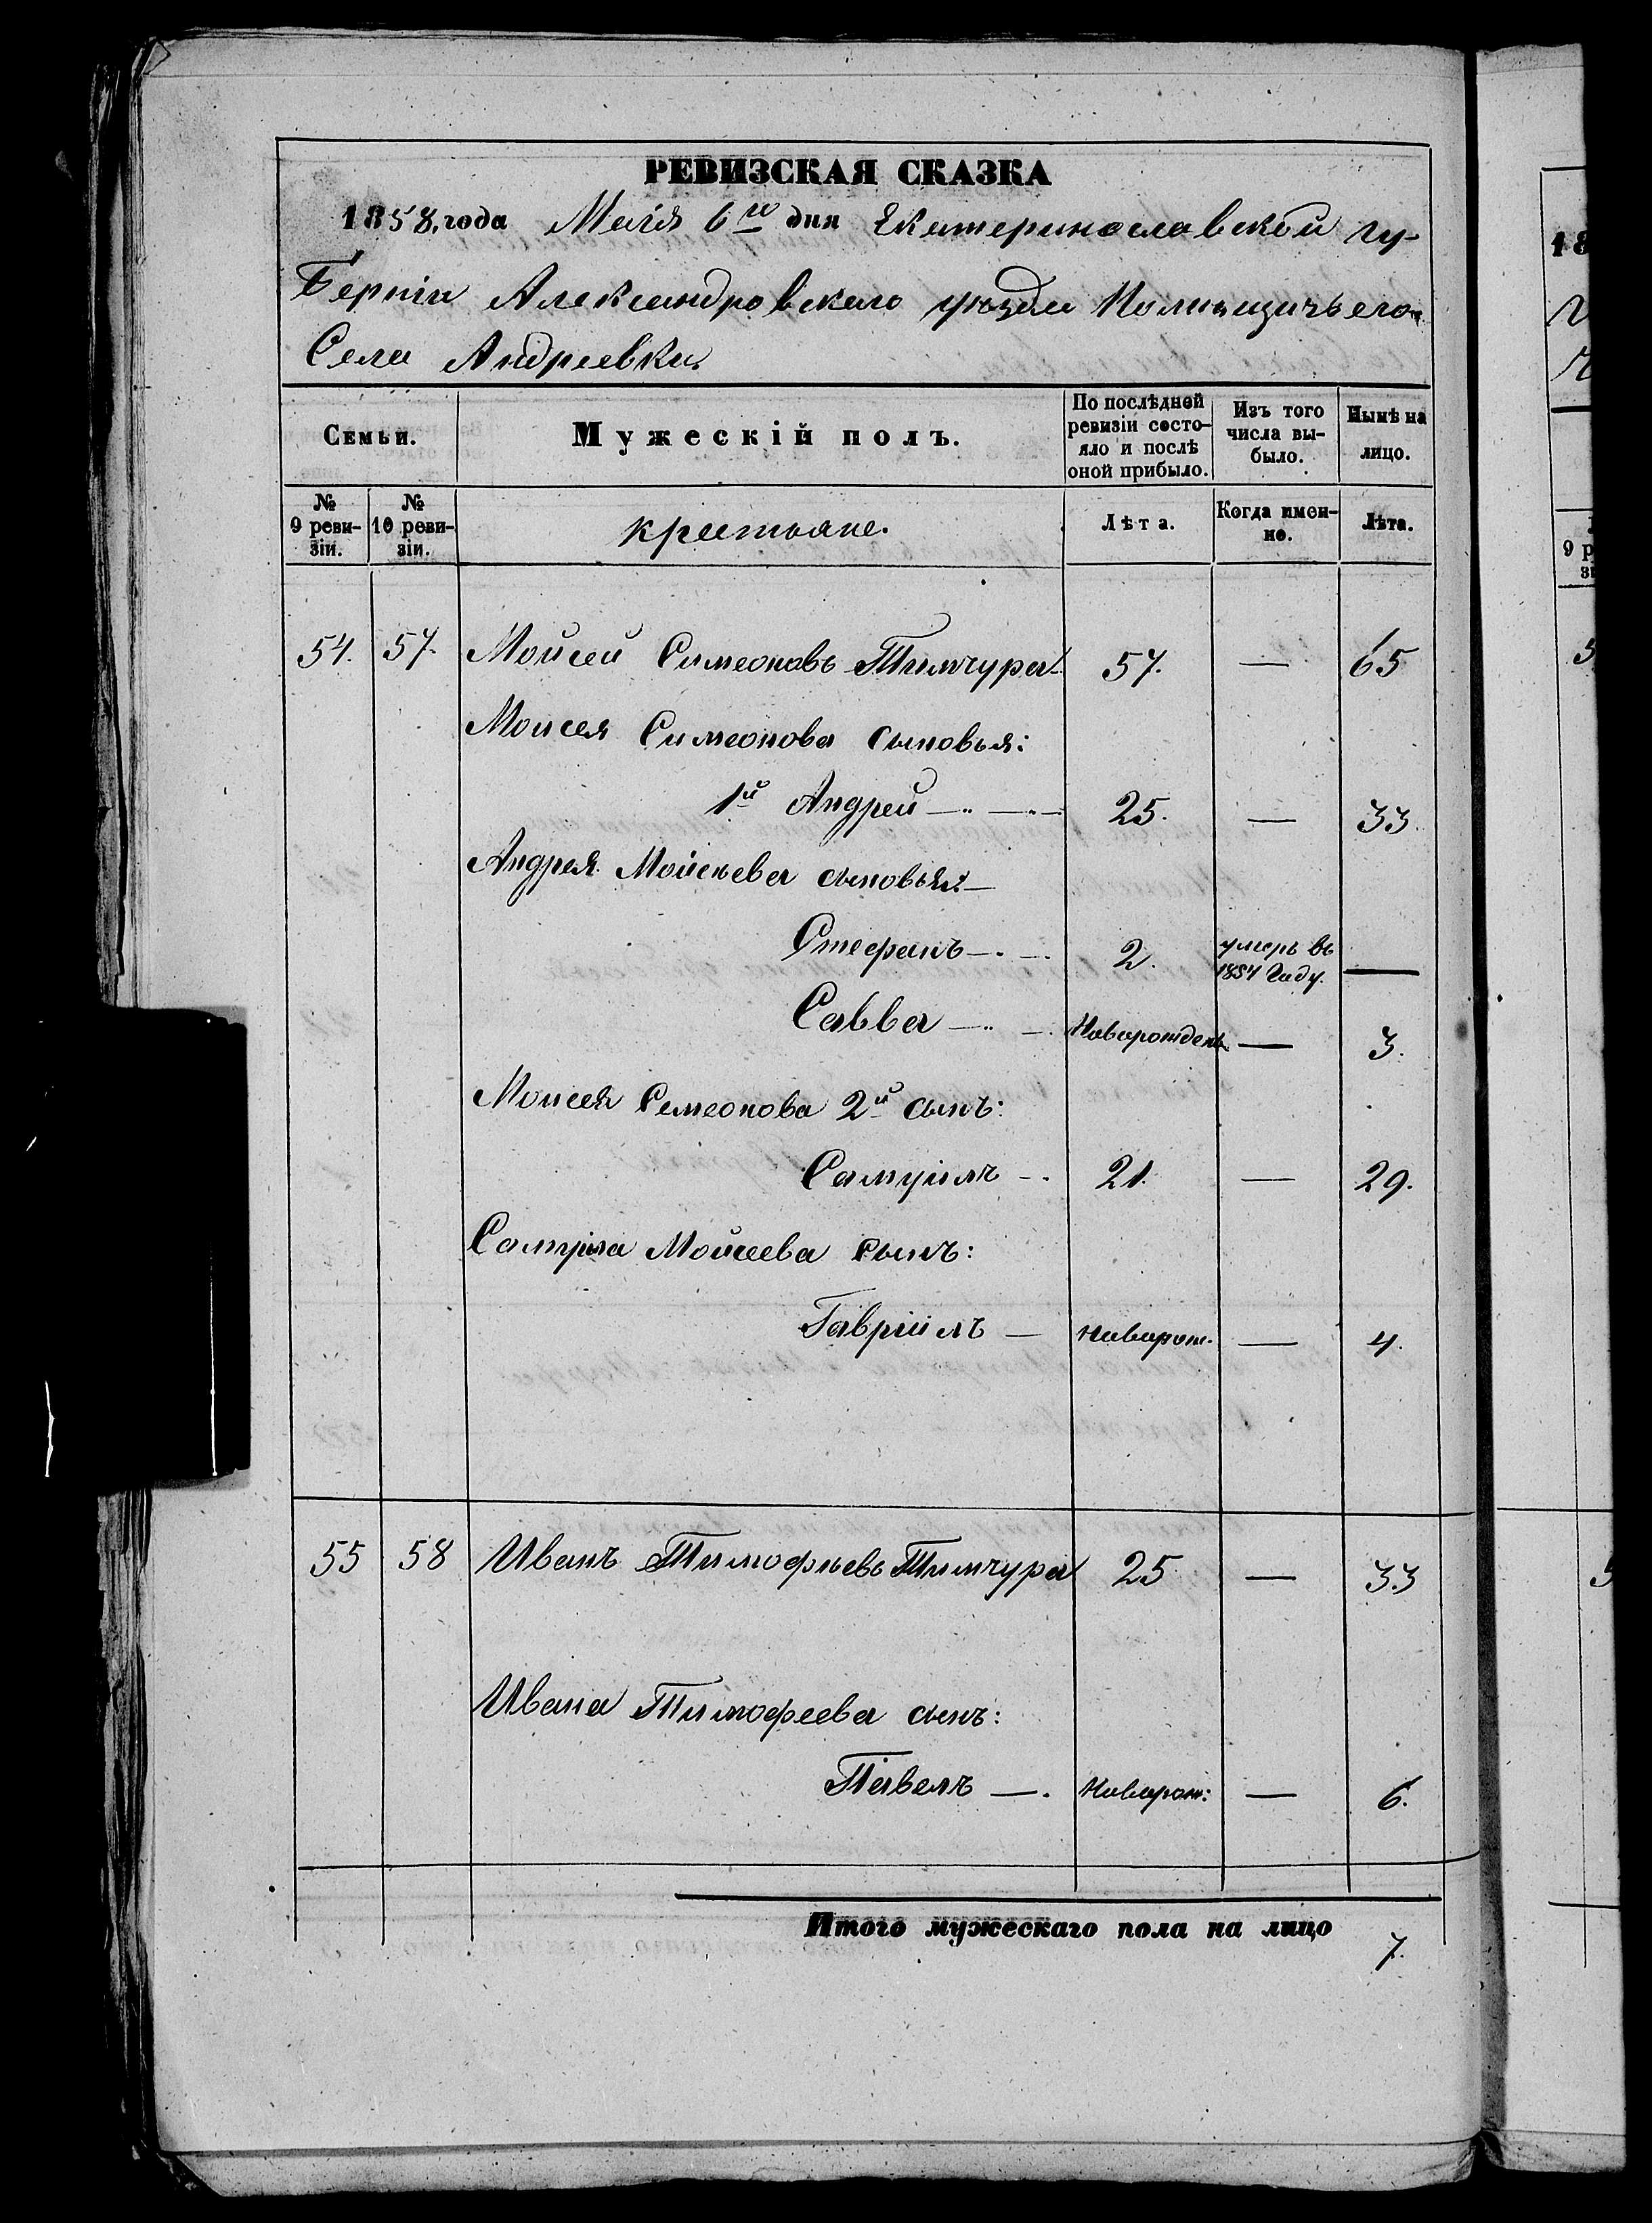 РЕВИЗСКАЯ СКАЗКА
1858, года Маія 6го дня Екатеринославской гу-
берніи Александровскаго уѣзда помѣщичьего
Села Андреевки
Семьи. Мужескій полъ. По послѣдней ревизіи состо-яло и послѣ оной прибыло. Изъ того числа вы-было. Нынѣ на лицо.
№ 9 реви-зіи. № 10 реви-зіи. крестьяне. Лѣта. Когда имен-но. Лѣта.
54. 57. Мойсей Симеоновъ Тимчура 57. — 65
Моисея Симеонова сыновья:
1й Андрей 25. — 33.
Андрея Мойсѣева сыновья:
Стефанъ 2. умеръ въ 1854 Году. —
Савва Новорожденъ — 3.
Моисея Семеонова 2й сынъ:
Самуилъ 21. — 29.
Самуила Мойсеева сынъ:
Гавріилъ — новорож. — 4.
55 58 Иванъ Тимофѣевъ Тимчура 25 — 33
Ивана Тимофеева сынъ:
Павелъ —. Новорож: — 6.
Итого мужескаго пола на лицо 7.
18
9 р
зі
5
5